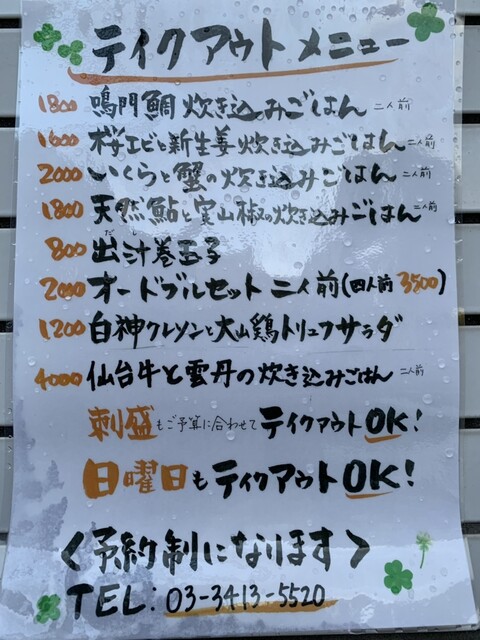 テイクアウトメニュー
1800 鳴門鯛炊き込みごはん 二人前
1600 桜エビと新生姜炊き込みごはん 二人前
2000 いくらと蟹の炊き込みごはん 二人前
1800 天然鮎と実山椒の炊き込みごはん 二人前
800 出汁巻玉子
2000 オードブルセット 二人前(四人前 3500)
1200 白神クレソンと大山鶏トリュフサラダ
4000 仙台牛と雲丹の炊き込みごはん 二人前
刺盛もご予算に合わせてテイクアウトOK!
日曜日もテイクアウトOK!
<予約制になります>
TEL:03-3413-5520